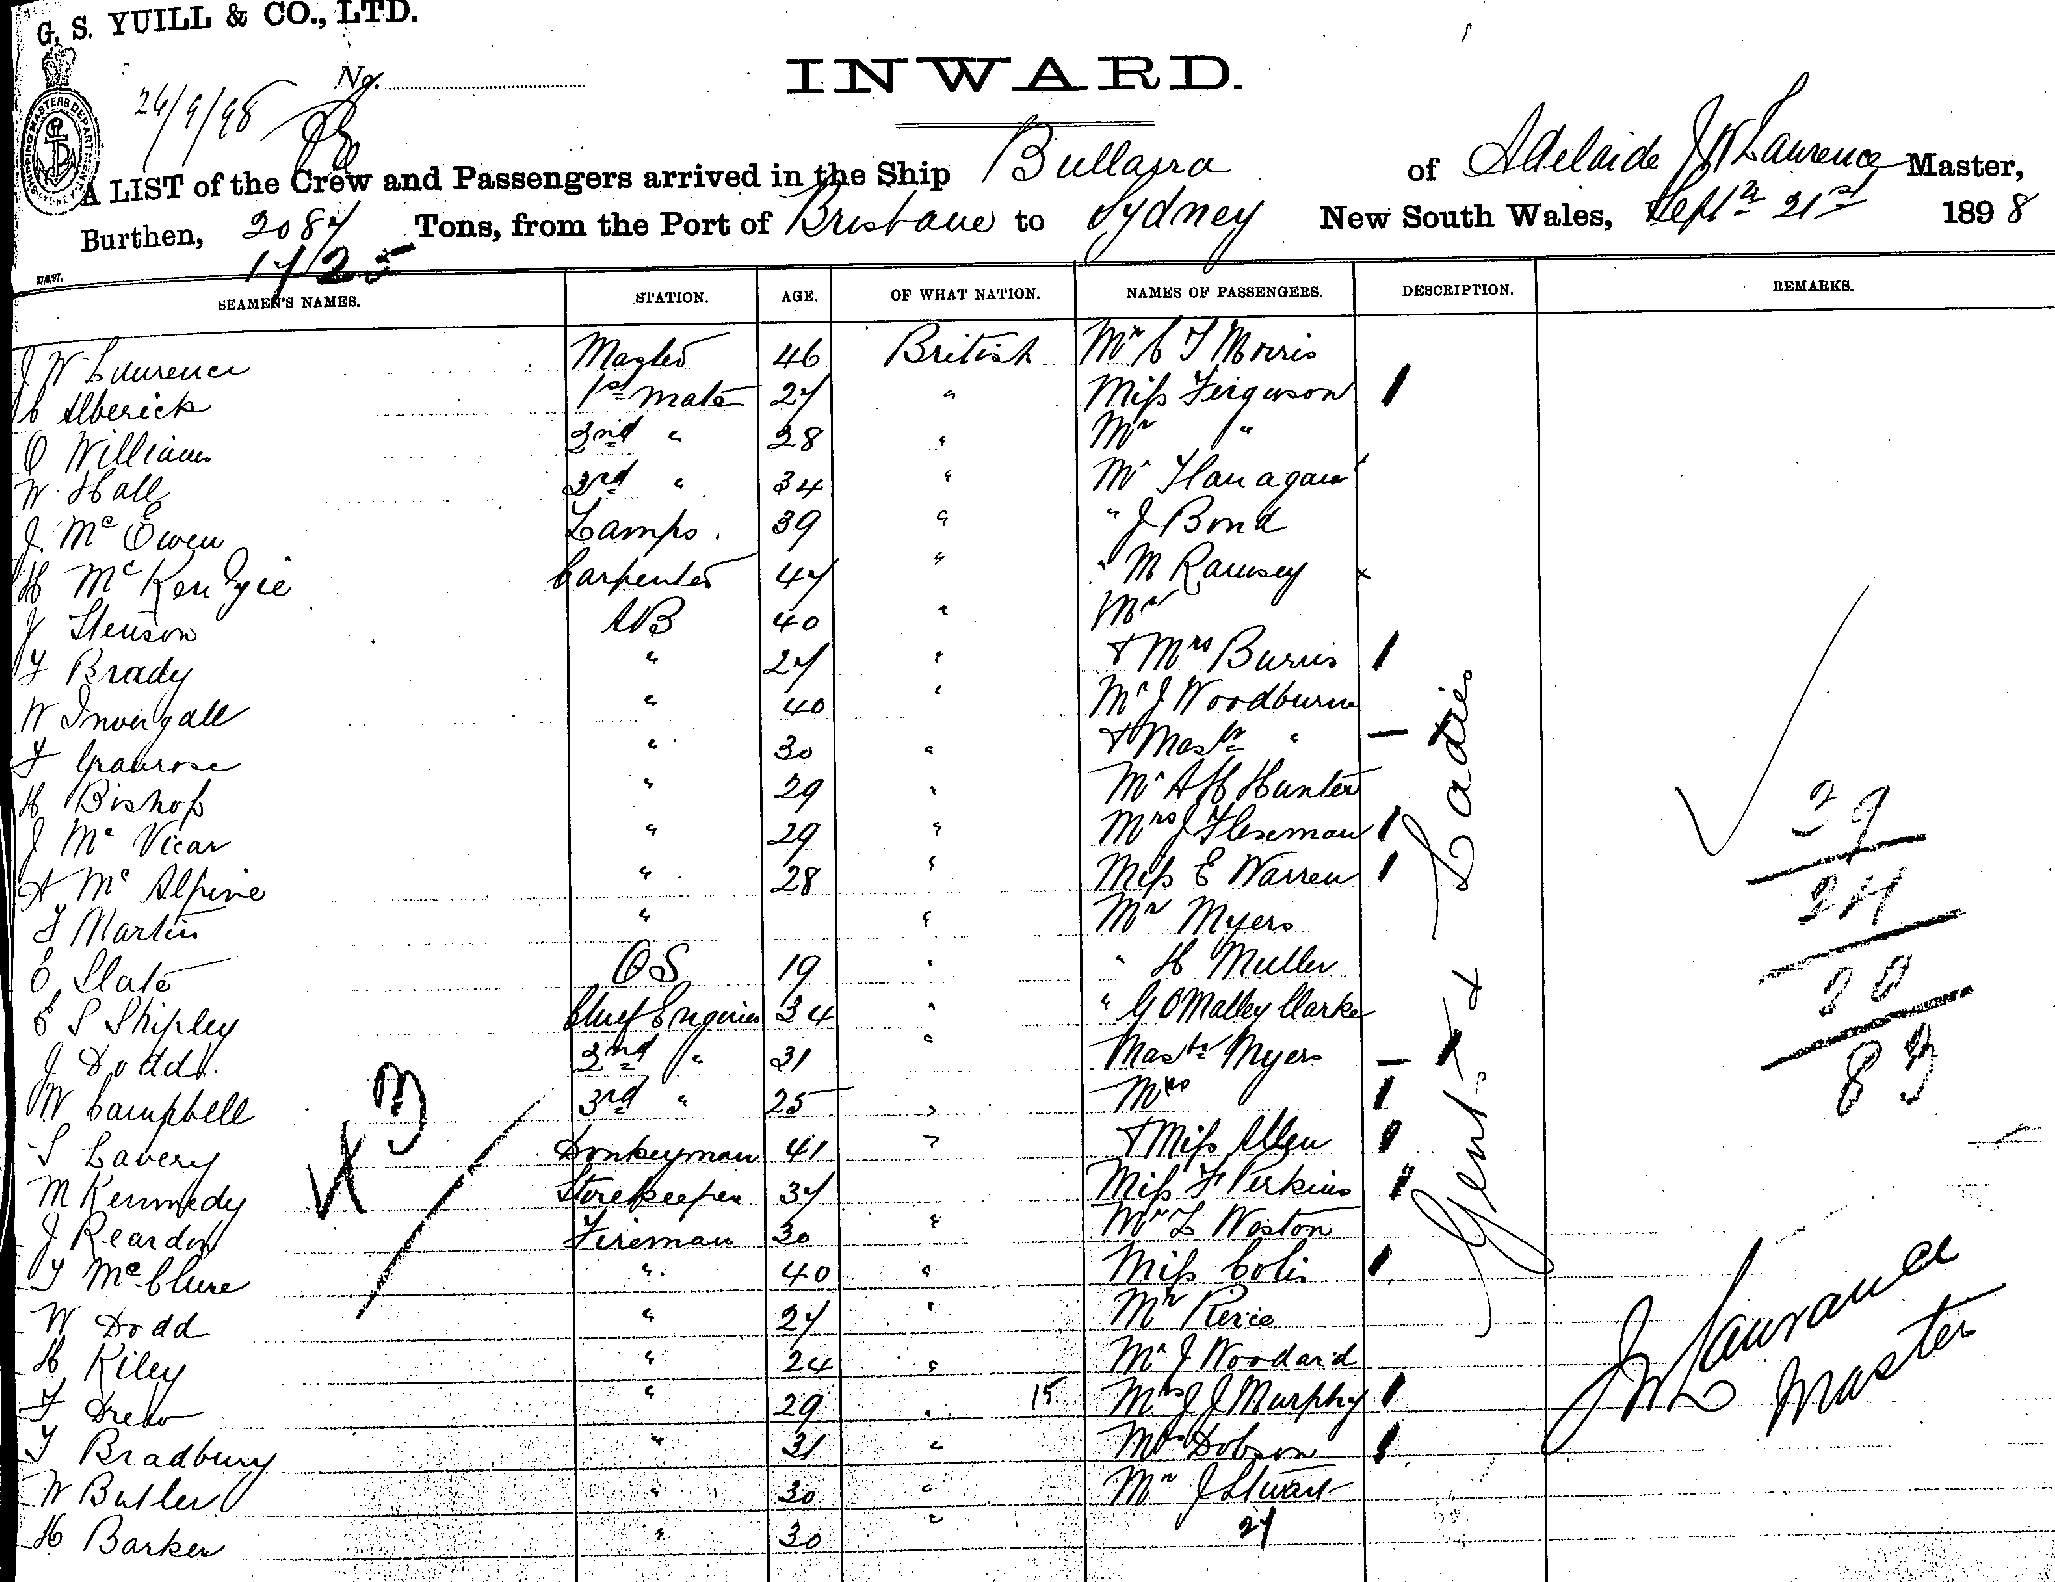 G. S. YUILL & CO., LTD.
No.
INWARD.
A LIST of the Crew and Passengers arrived in the Ship Bullarra of Adelaide J W Laurence Master,
Burthen, 2087 Tons, from the Port of Brisbane to Sydney New South Wales, Sept 21st 1898
1725
SEAMEN'S NAMES. STATION. AGE. OF WHAT NATION. NAMES OF PASSENGERS. DESCRIPTION. REMARKS.
J W Laurence Master 46 British Mr C T Morris
Alberick 1st Mate 27 " Miss Ferguson
O Williams 2nd " 28 " Mr "
W. Hall 3rd " 34 " Mr Flanagan
J. Mc Ewen Lamps. 39 " " J Bond
H McKenzie Carpenter 47 " " M Ramsey
J Stenson AB 40 " Mr
F Brady " 27 " & Mrs Burris
W Invergall " 40 " Mr J Woodburn
F " 30 " & Mastr "
H Bishop " 29 " Mr A H Hunter
J Mc Vicar " 29 " Mrs J
A Mc Alpine " 28 " Miss E Warren
F Martin " " Mr Myers
E Slate OS 19 " " H Muller
E S Shipley Chief Engineer 34 " " G O Malley Clarke
J Dodd. 2nd " 31 " Mastr Myers
W Campbell 3rd " 25 " Mrs
S Lavery Donkeyman 41 " & Miss Allen
M Kennedy Storekeeper 37 Miss F Perkins
J Reardon Fireman 30 " Mr L Weston
T McClure " 40 " Miss Colis
W Dodd " 27 " Mr Pierce
H Kiley " 24 " Mr J Woodard
F Drew " 29 " 15 Mrs J J Murphy
T Bradbury " 31 " Mrs Dobson
W Butler " 30 " Mr J Stuart
H Barker " 30 " 27
Gent &
Ladies
29
24
30
83
J W Laurance
Master